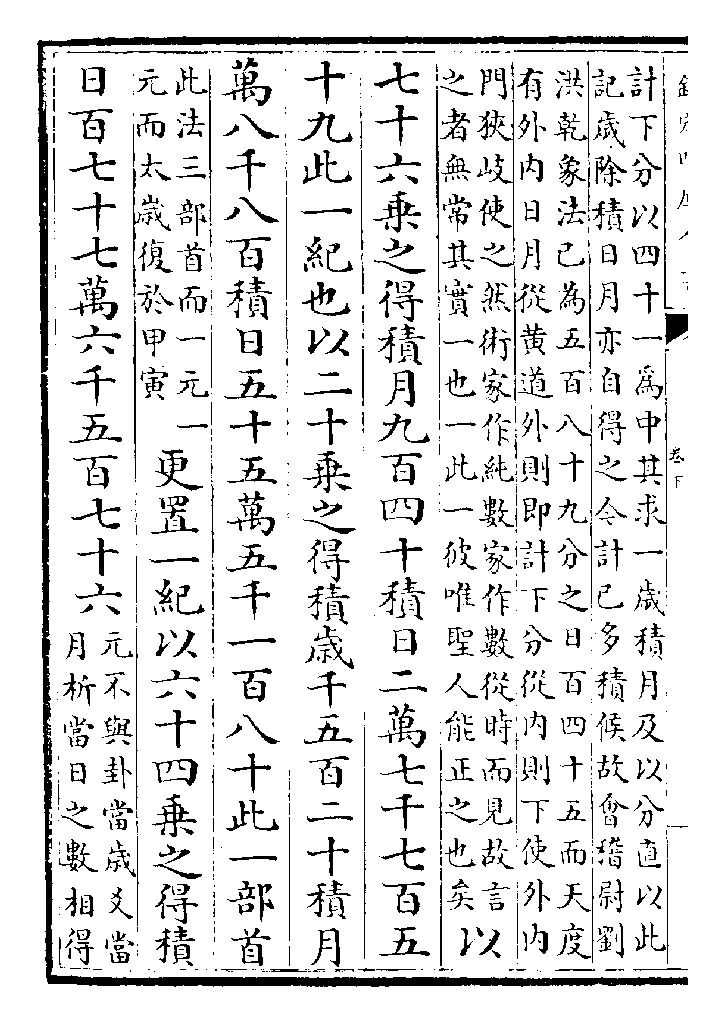 卷下
計下分以四十一爲中其求一歲積月及以分直以此
記歲除積日月亦自得之令計已多積候故會稽尉劉
洪乾象法已為五百八十九分之日百四十五而天度
有外内日月從黄道外則即計下分從内則下使外内
門狹岐使之然術家作純數家作數從時而見故言
之者無常其實一也一此一彼唯聖人能正之也矣
以
七十六乗之得積月九百四十積日二萬七千七百五
十九此一紀也以二十乗之得積歲千五百二十積月
萬八千八百積日五十五萬五千一百八十此一部首
此法三部首而一元一
元而太歲復於甲寅
更置一紀以六十四乗之得積
日百七十七萬六千五百七十六
元不與卦當歲爻當
月析當日之數相得